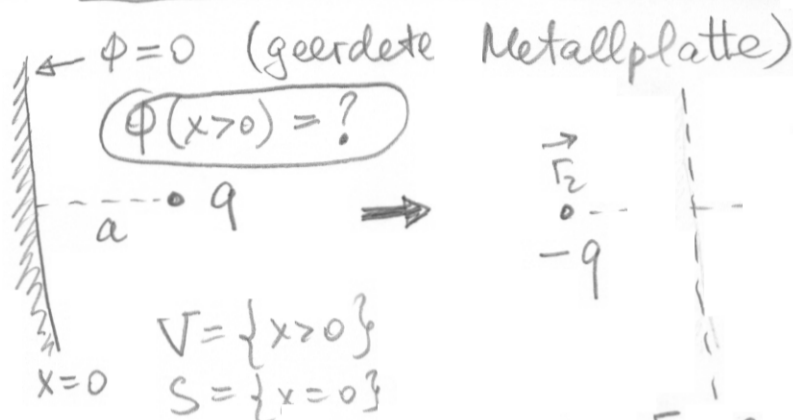 ← Φ=0 (geerdete Metallplatte)
Φ(x>0) = ?
a
q
⇒
r⃗₂
-q
V={x>0}
x=0
S={x=0}